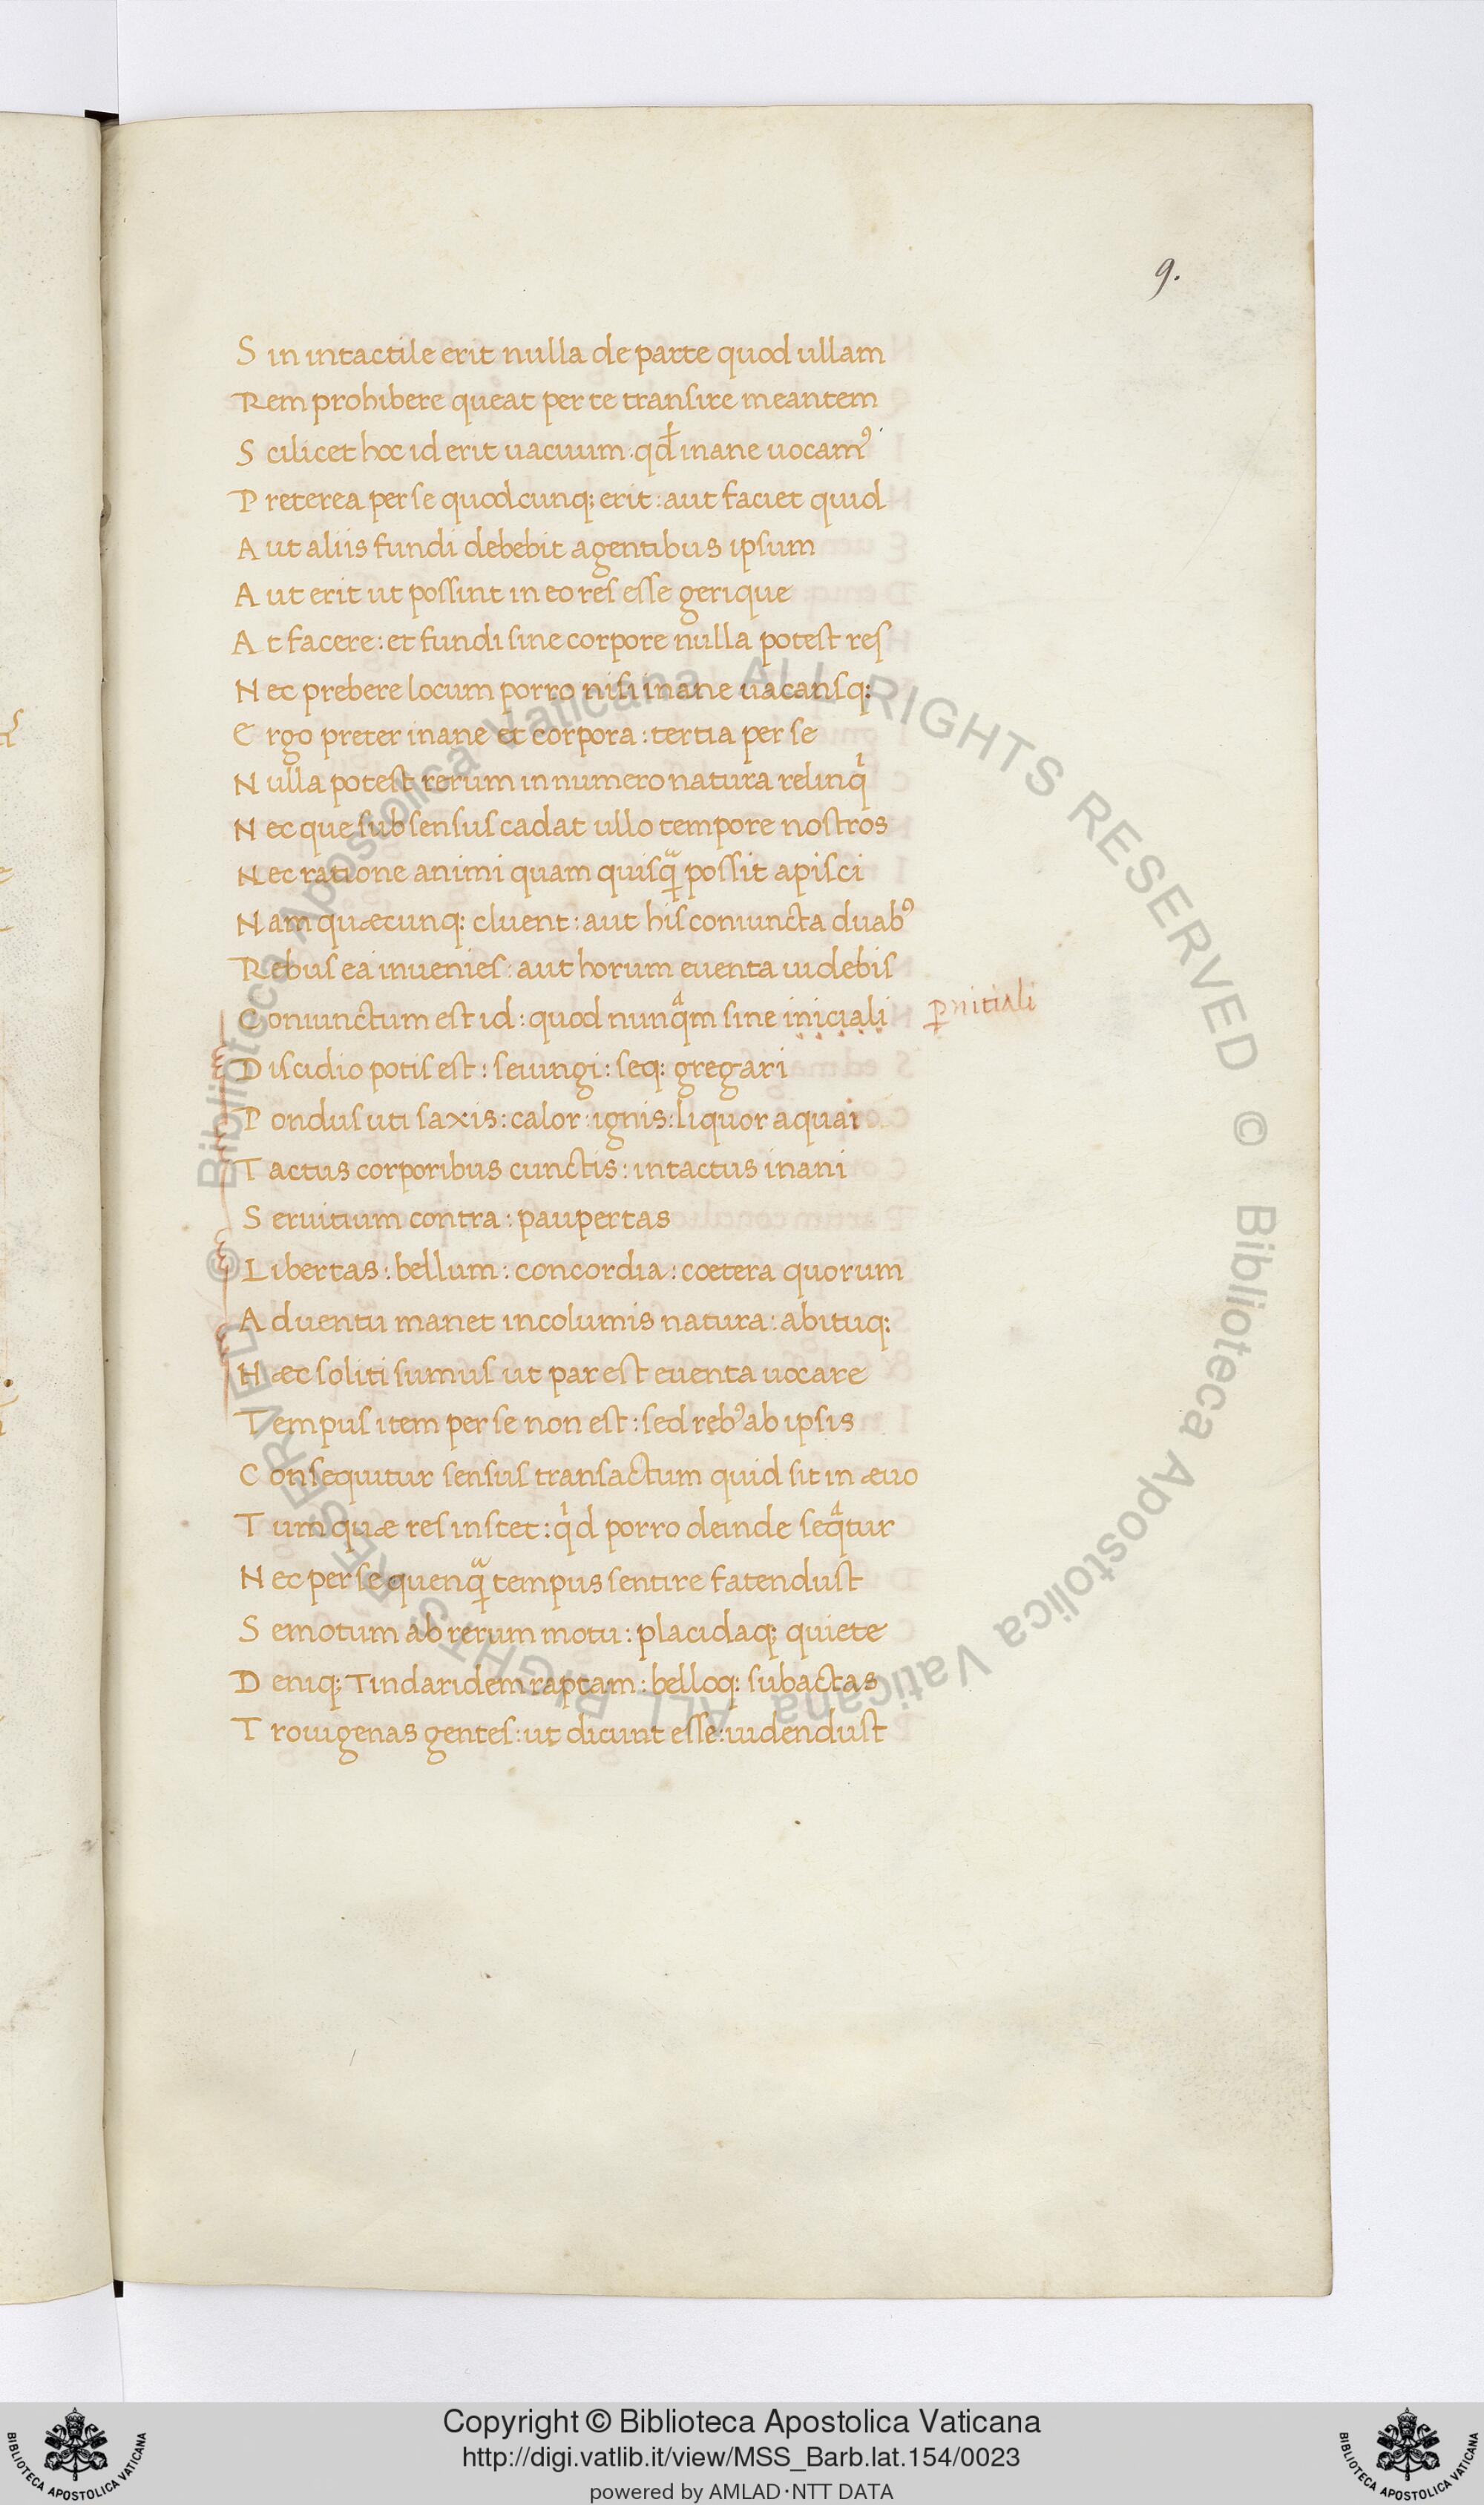 9.
S in intactile erit nulla de parte quod ullam
Rem prohibere queat per te transire meantem
S cilicet hoc id erit uacuum .qđ inane uocamꝰ
P reterea per se quodcunq; erit : aut faciet quid
A ut aliis fundi debebit agentibus ipsum
A ut erit ut possint in eo res esse gerique
A t facere : et fundi sine corpore nulla potest res
N ec prebere locum porro nisi inane uacansq;
E rgo preter inane et corpora : tertia per se
N ulla potest rerum in numero natura relinqͥ
N ec que sub sensus cadat ullo tempore nostros
N ec ratione animi quam quisqᷓ possit apisci
N am quæcunq; cluent : aut his coniuncta duabꝰ
R ebus ea inuenies : aut horum euenta uidebis
C oniunctum est id : quod nunqͣm sine iniciali
ꝑnitiali
D iscidio potis est : seiungi : seq; gregari
P ondus uti saxis : calor : ignis : liquor aquai
T actus corporibus cunctis : intactus inani
S eruitium contra : paupertas
L ibertas : bellum : concordia : coetera quorum
A duentu manet incolumis natura : abituq;
H æc soliti sumus ut par est euenta uocare
T empus item per se non est : sed rebꝰ ab ipsis
C onsequitur sensus transactum quid sit in æuo
T um quæ res instet : qͥd porro deinde seqͣtur
N ec per se quenqᷓ tempus sentire fatendust
S emotum ab rerum motu : placidaq; quiete
D eniq; Tindaridem raptam : belloq; subactas
T roiugenas gentes : ut dicunt esse : uidendust
© Biblioteca Apostolica Vaticana ALL RIGHTS RESERVED © Biblioteca Apostolica Vaticana ALL RIGHTS RESERVED
Copyright © Biblioteca Apostolica Vaticana
http://digi.vatlib.it/view/MSS_Barb.lat.154/0023
powered by AMLAD·NTT DATA
BIBLIOTECA APOSTOLICA VATICANA
BIBLIOTECA APOSTOLICA VATICANA